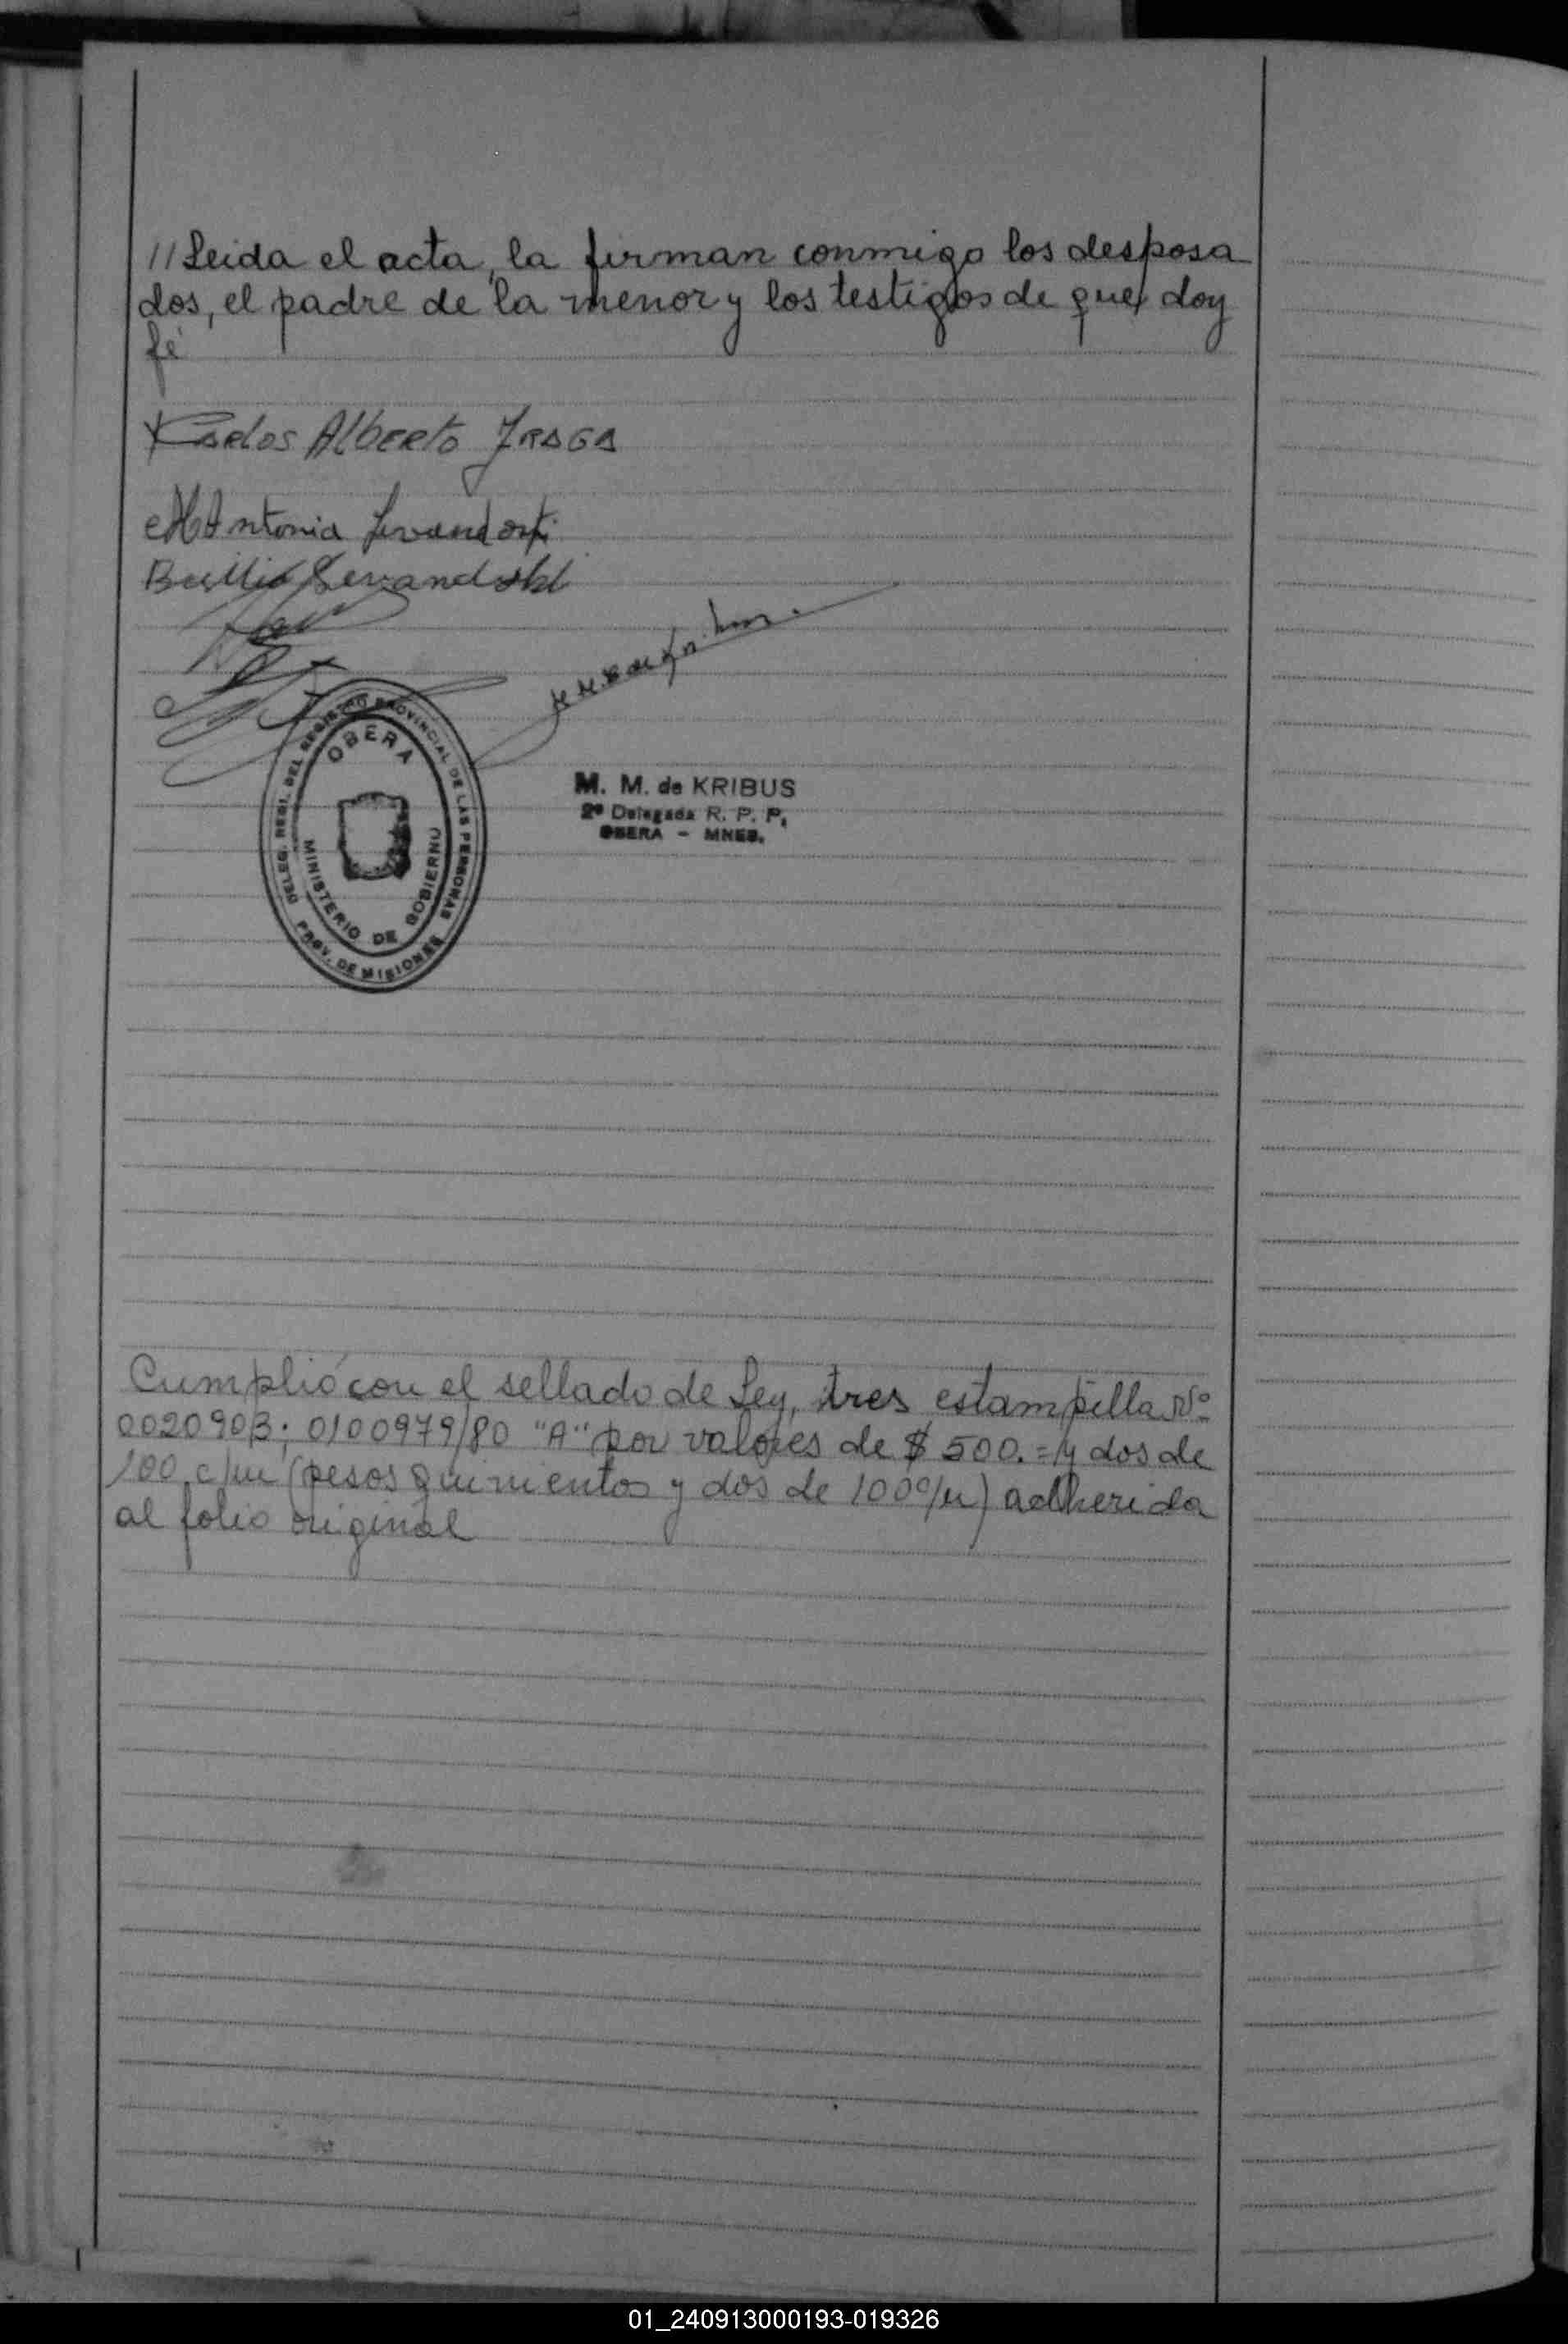 //Leida el acta, la firman conmigo los desposa
dos, el padre de la menor y los testigos de que doy
fé
Carlos Alberto FRAGA
M Antonia Levandoski
Basilio Levandoski
DELEG. REGI. DEL REGISTRO PROVINCIAL DE LAS PERSONAS
OBERA
MINISTERIO DE GOBIERNO
PROV. DE MISIONES
M. M. de KRIBUS
2ª Delegada R. P. P.
OBERA - MNES.
Cumplió con el sellado de Ley, tres estampilla Nº
0020903; 0100979/80 "A" por valores de $ 500.= y dos de
100 c/u (pesos quinientos y dos de 100 c/u) adherida
al folio original
01_240913000193-019326